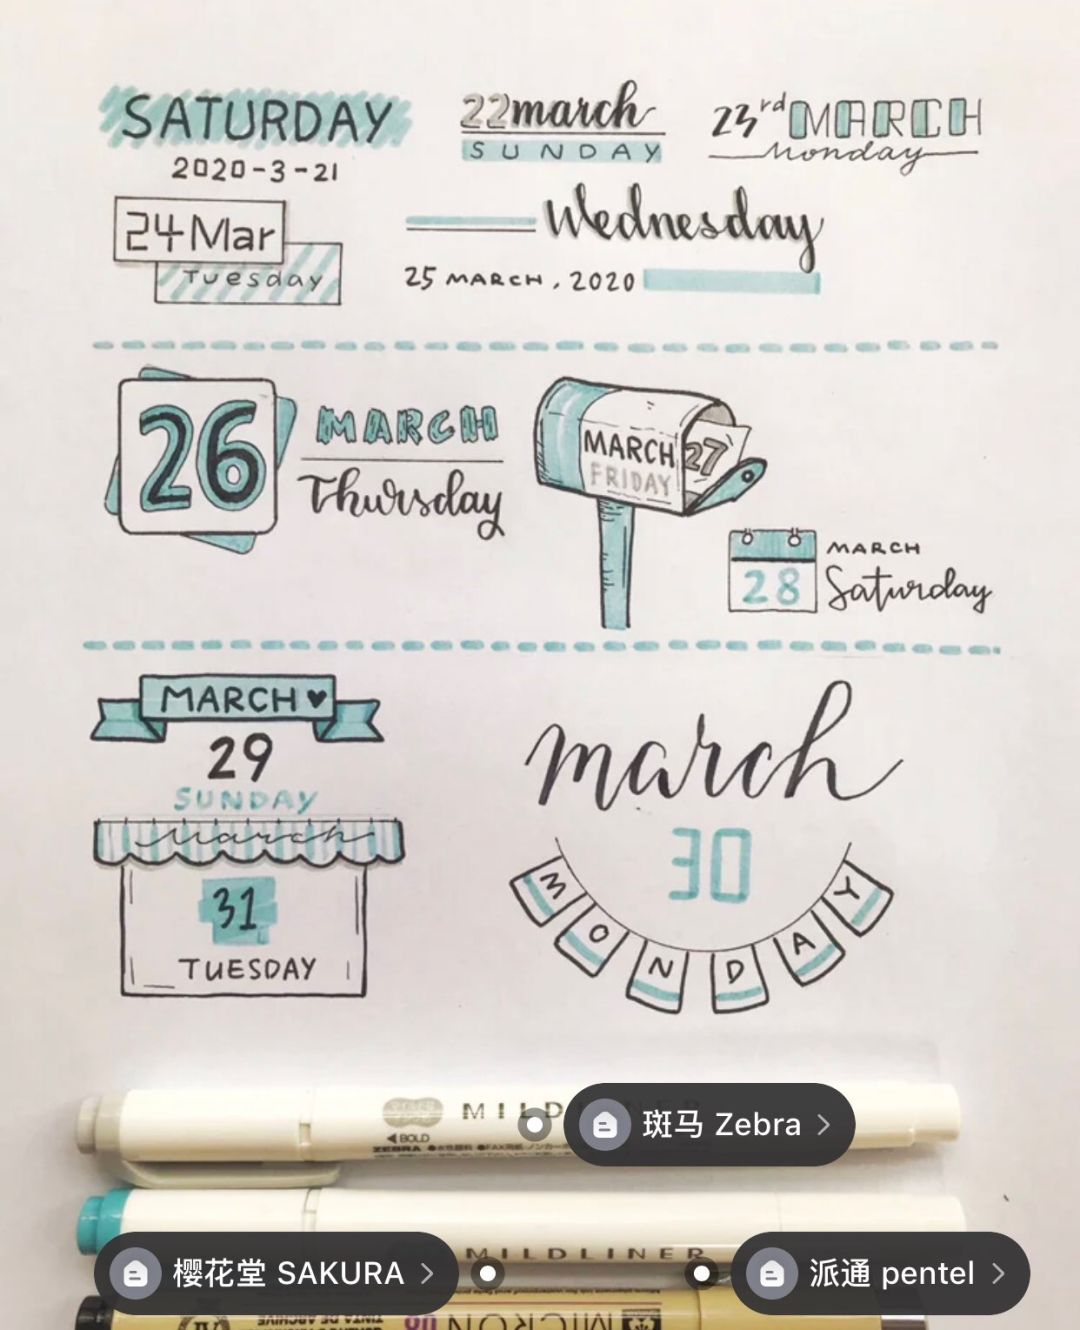 SATURDAY
2020-3-21
22march
SUNDAY
23rd MARCH
Monday
24 Mar
Tuesday
Wednesday
25 MARCH, 2020
26
MARCH
Thursday
MARCH 27
FRIDAY
28
MARCH
Saturday
MARCH ♥
29
SUNDAY
march
31
TUESDAY
march
30
MONDAY
MILDLINER
斑马 Zebra
◀BOLD
ZEBRA
MILDLINER
樱花堂 SAKURA
派通 pentel
MICRON 08